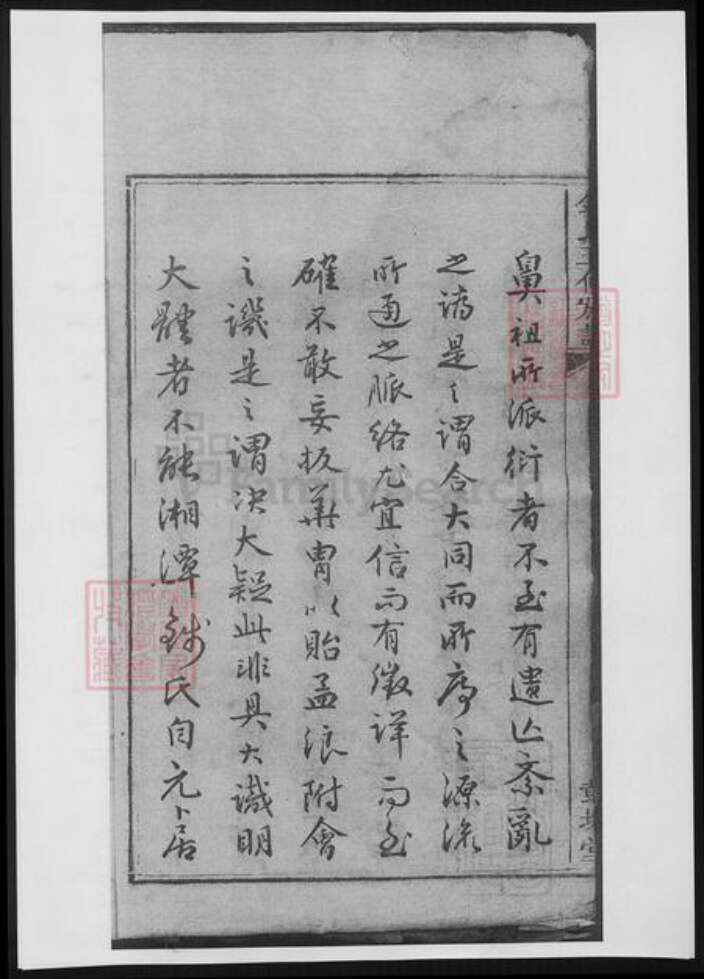 鼻祖所派衍者不至有遺亡紊亂
之譌是之謂合大同而所序之源流
所通之脈絡尤宜信而有徵詳而至
確不敢妄扳華胄以貽孟浪附會
之譏是之謂决大疑此非具大識明
大體者不能湘潭錢氏自元卜居
FamilySearch